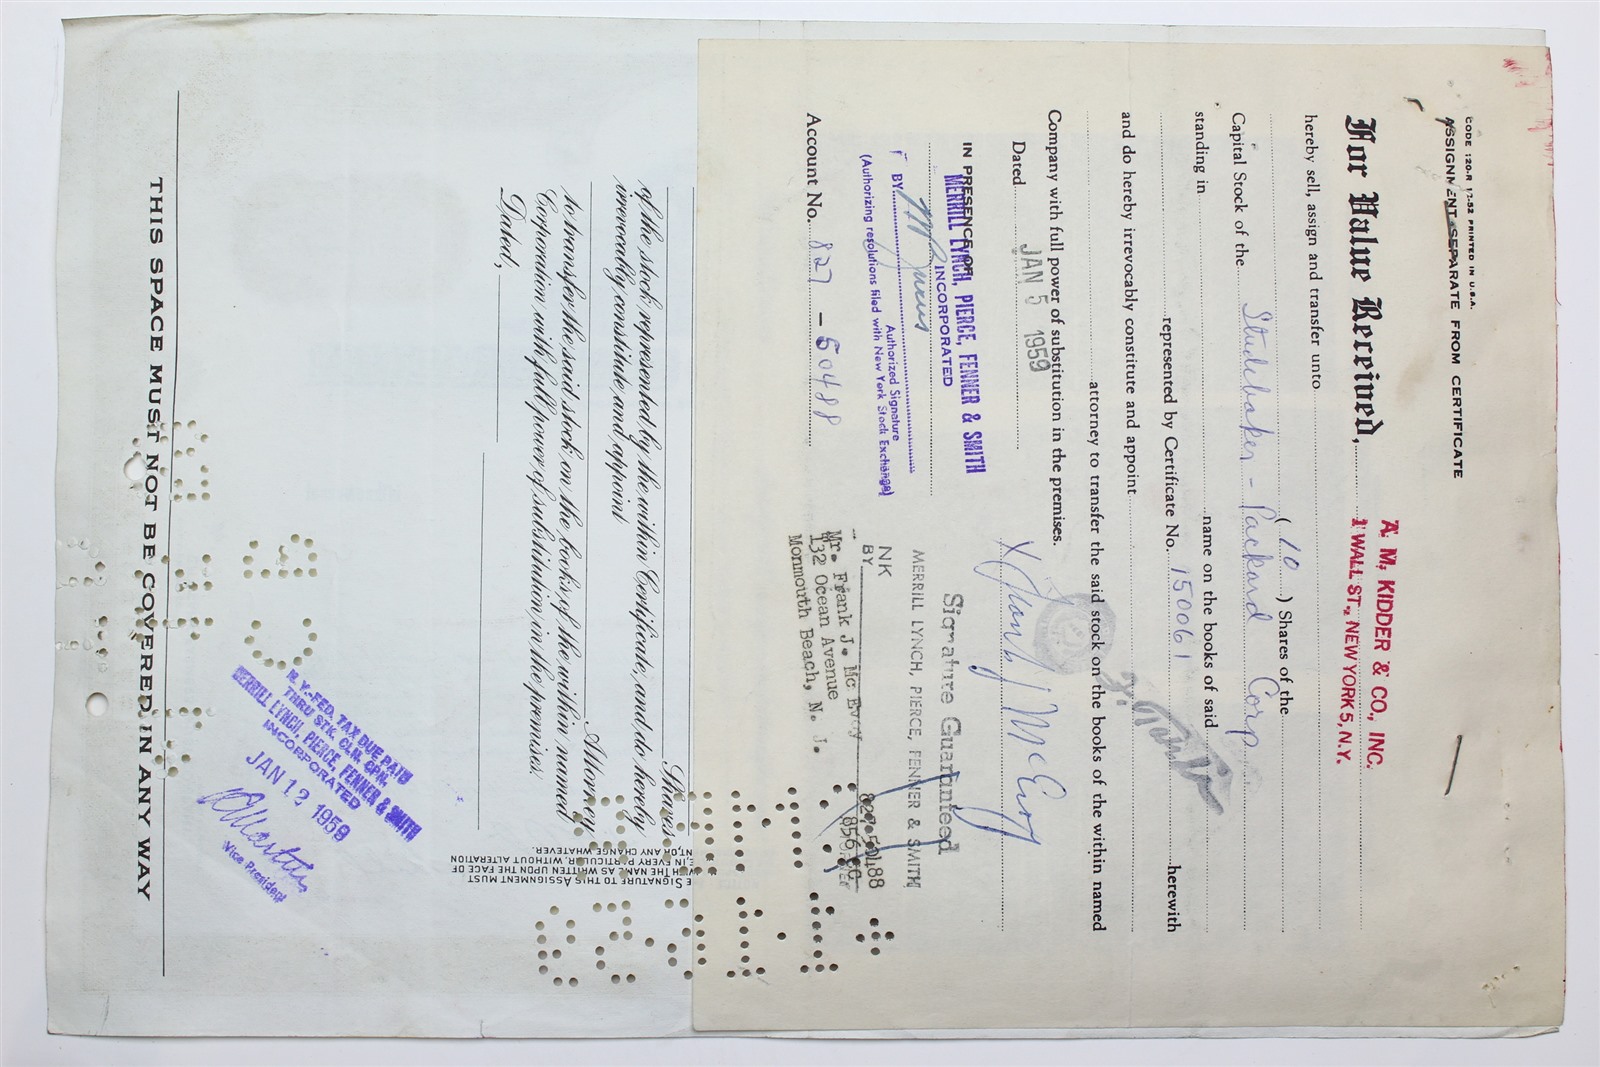 CODE 120-R 11-52 PRINTED IN U.S.A.
ASSIGNMENT SEPARATE FROM CERTIFICATE
A. M. KIDDER & CO., INC.
For Value Received,
1 WALL ST., NEW YORK 5, N.Y.
hereby sell, assign and transfer unto
(10) Shares of the
Capital Stock of the Studebaker - Packard Corp
standing in name on the books of said
represented by Certificate No. 150061 herewith
and do hereby irrevocably constitute and appoint
attorney to transfer the said stock on the books of the within named
Company with full power of substitution in the premises.
Dated JAN 5 1959
X Frank J McEvoy
IN PRESENCE OF
MERRILL LYNCH, PIERCE, FENNER & SMITH
INCORPORATED
BY
Authorized Signature
(Authorizing resolutions filed with New York Stock Exchange)
Signature Guaranteed
MERRILL LYNCH, PIERCE, FENNER & SMITH
NK
BY
Account No. 827 - 50488
827-50488
Mr. Frank J. Mc Evoy
132 Ocean Avenue
Monmouth Beach, N. J.
Shares
of the stock represented by the within Certificate, and do hereby
irrevocably constitute and appoint
Attorney
to transfer the said stock on the books of the within named
Corporation with full power of substitution in the premises.
Dated,
SIGNATURE TO THIS ASSIGNMENT MUST
THE NAME AS WRITTEN UPON THE FACE OF
IN EVERY PARTICULAR, WITHOUT ALTERATION
OR ANY CHANGE WHATEVER.
N.Y.-FED. TAX DUE PAID
THRU STK. CLR. CPN.
MERRILL LYNCH, PIERCE, FENNER & SMITH
INCORPORATED
JAN 12 1959
Vice President
THIS SPACE MUST NOT BE COVERED IN ANY WAY